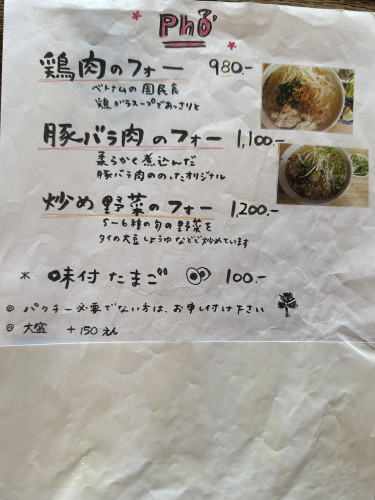 Phở
鶏肉のフォー 980.-
ベトナムの国民食
鶏ガラスープであっさりと
豚バラ肉のフォー 1,100.-
柔らかく煮込んだ
豚バラ肉ののったオリジナル
炒め野菜のフォー 1,200.-
5〜6種の旬の野菜を
タイの大豆しょうゆなどで炒めています
* 味付たまご 100.-
◎ パクチー必要でない方は、お申し付け下さい
◎ 大盛 +150えん